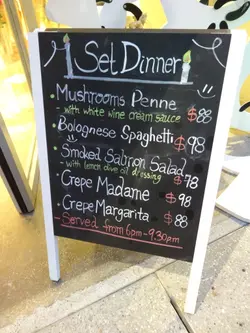 Set Dinner
Mushrooms Penne
- with white wine cream sauce $88
Bolognese Spaghetti $98
Smoked Salmon Salad
- with lemon olive oil dressing $78
Crepe Madame $98
Crepe Margarita $88
- Served from 6pm - 9.30pm